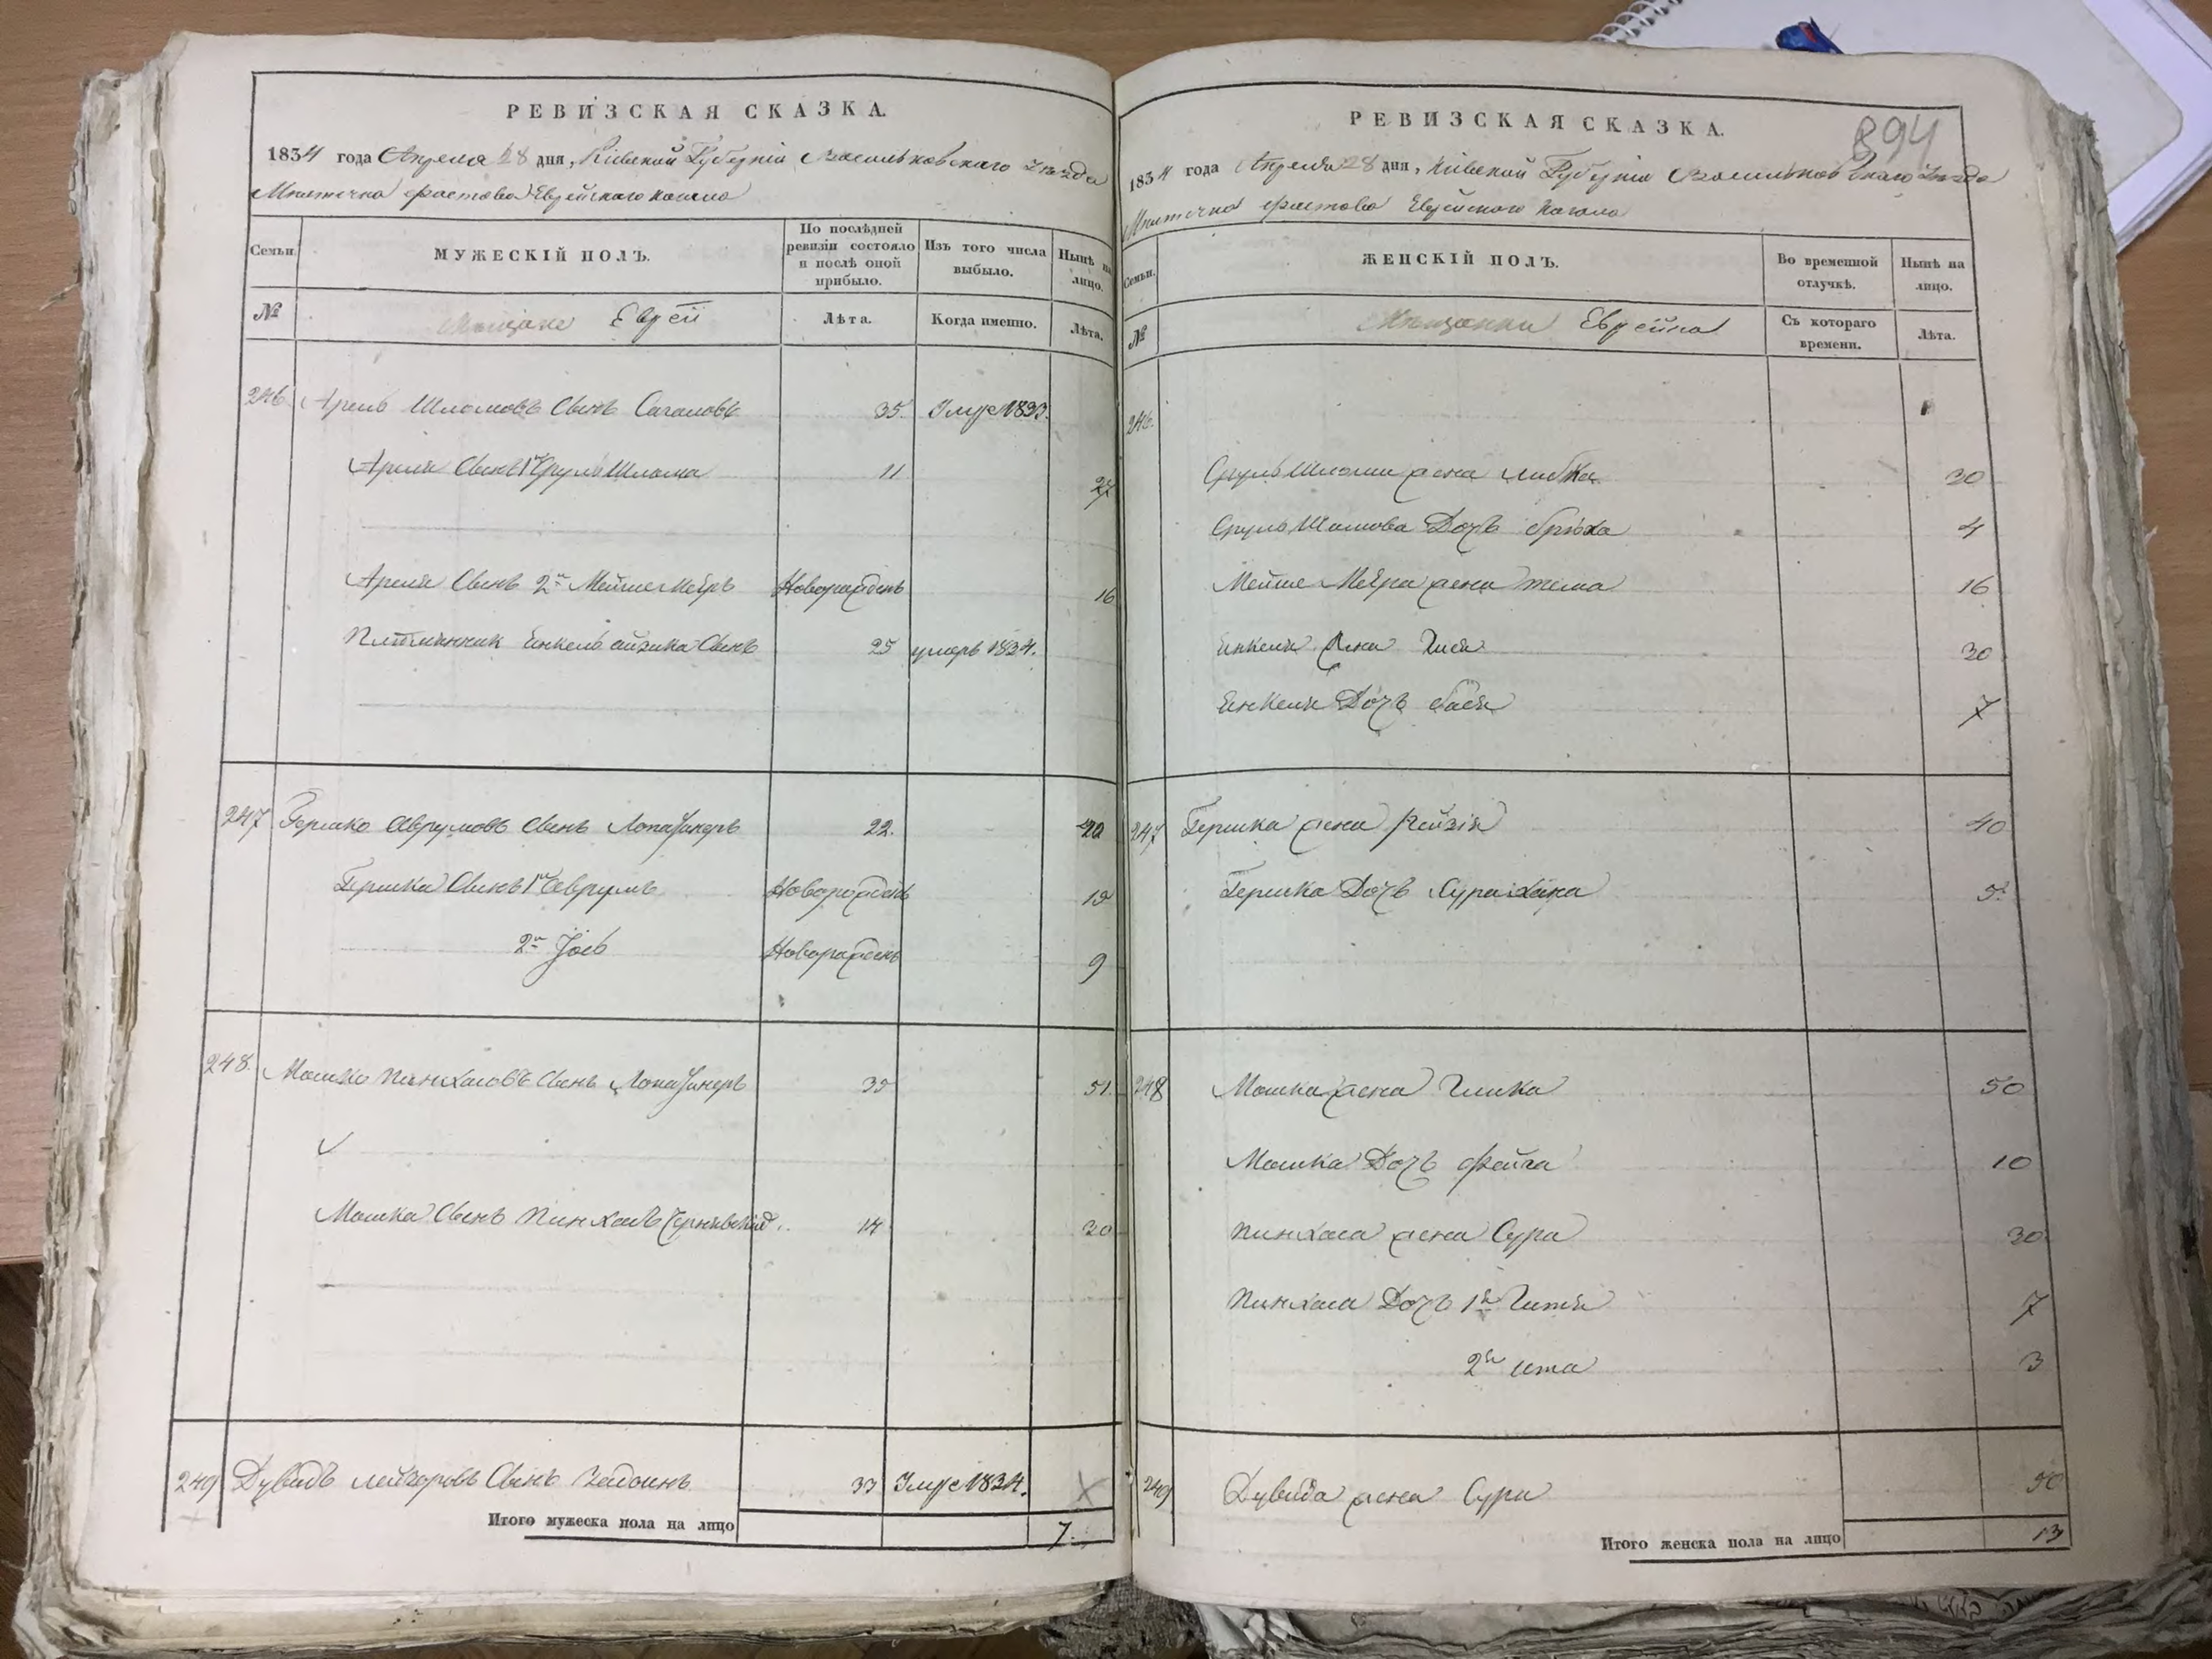 РЕВИЗСКАЯ СКАЗКА.
1834 года Апреля 28 дня, Кіевской Губерніи Васильковскаго Уѣзда
Мѣстечка Фастова Еврейскаго Кагала
Семьи. МУЖЕСКІЙ ПОЛЪ. По послѣдней ревизіи состояло и послѣ оной прибыло. Изъ того числа выбыло. Нынѣ на лицо.
№ Мѣщане Евреи Лѣта. Когда именно. Лѣта.
246. Арель Шломовъ Сынъ Сагаловъ 35. Умре 1833.
Ареля Сынъ 1й Сруль Шлома 11 27
Ареля Сынъ 2й Мейше Меіръ Новорожденъ 16
Племянник Енкель Айзика Сынъ 25 умеръ 1834.
247 Гершко Аврумовъ Сынъ Лопатинеръ 22.
Гершка Сынъ 1й Аврумъ Новорожденъ
2й Новорожденъ 9
248. Мошко Пинхасовъ Сынъ Лопатинеръ 35 51.
Мошка Сынъ Пинхасъ Чернявскій 14 30
249 Дувидъ Лейзоровъ Сынъ 33 Умре 1834.
Итого мужеска пола на лицо 7.
РЕВИЗСКАЯ СКАЗКА.
894
1834 года Апреля 28 дня, Кіевской Губерніи Васильковскаго Уѣзда
Мѣстечка Фастова Еврейского Кагала
Семьи. ЖЕНСКІЙ ПОЛЪ. Во временной отлучкѣ. Нынѣ на лицо.
№ Мѣщанки Еврейки Съ котораго времени. Лѣта.
246.
Сруль Шломы жена Либка 30
Сруль Шломова Дочъ Брюха 4
Мейше Меіра жена 16
Енкеля жена 30
Енкеля Дочъ Бася 7
247 Гершка жена Рейзія 40
Гершка Дочъ Сура Хана
248 Мошка жена 50
Мошка Дочъ Фейга 10
Пинхаса жена Сура 30
Пинхаса Дочъ 1я Гитя 7
2я Ита 3
249 Дувида жена Сура 50
Итого женска пола на лицо 13